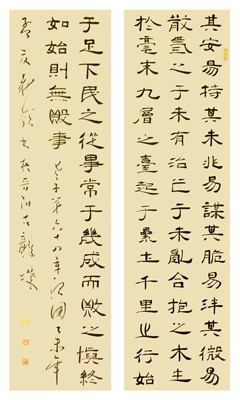 其安易持其未兆易謀其脆易泮其微易
散爲之于未有治之于未亂合抱之木生
於毫末九層之臺起于累土千里之行始
于足下民之從事常于幾成而敗之慎終
如始則無敗事 老子第六十四章